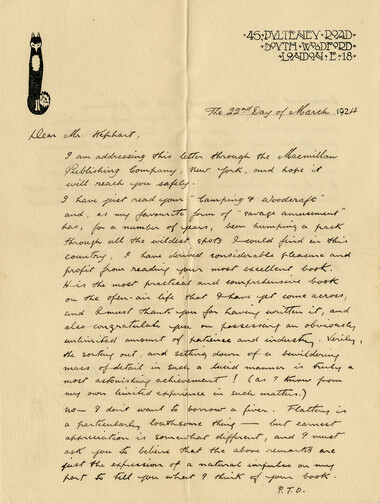 ·45·PYLTENEY·ROAD·
·SOVTH·WOODFORD·
·LONDON·E·18·
The 22nd Day of March 1924
Dear Mr. Kephart,
I am addressing this letter through the Macmillan
Publishing Company, New York, and hope it
will reach you safely.
I have just read your "Camping & Woodcraft"
and, as my favourite form of "savage amusement"
has, for a number of years, been humping a pack
through all the wildest spots I could find in this
country, I have derived considerable pleasure and
profit from reading your most excellent book.
It is the most practical and comprehensive book
on the open-air life that I have yet come across,
and I must thank you for having written it, and
also congratulate you on possessing an obviously
unlimited amount of patience and industry. Verily,
the sorting out, and setting down of a bewildering
mass of detail in such a lucid manner is truly a
most astonishing achievement! (as I know from
my own limited experience in such matters.)
No — I don't want to borrow a fiver. Flattery is
a particularly loathsome thing — but earnest
appreciation is somewhat different, and I must
ask you to believe that the above remarks are
just the expression of a natural impulse on my
part to tell you what I think of your book.
P.T.O.